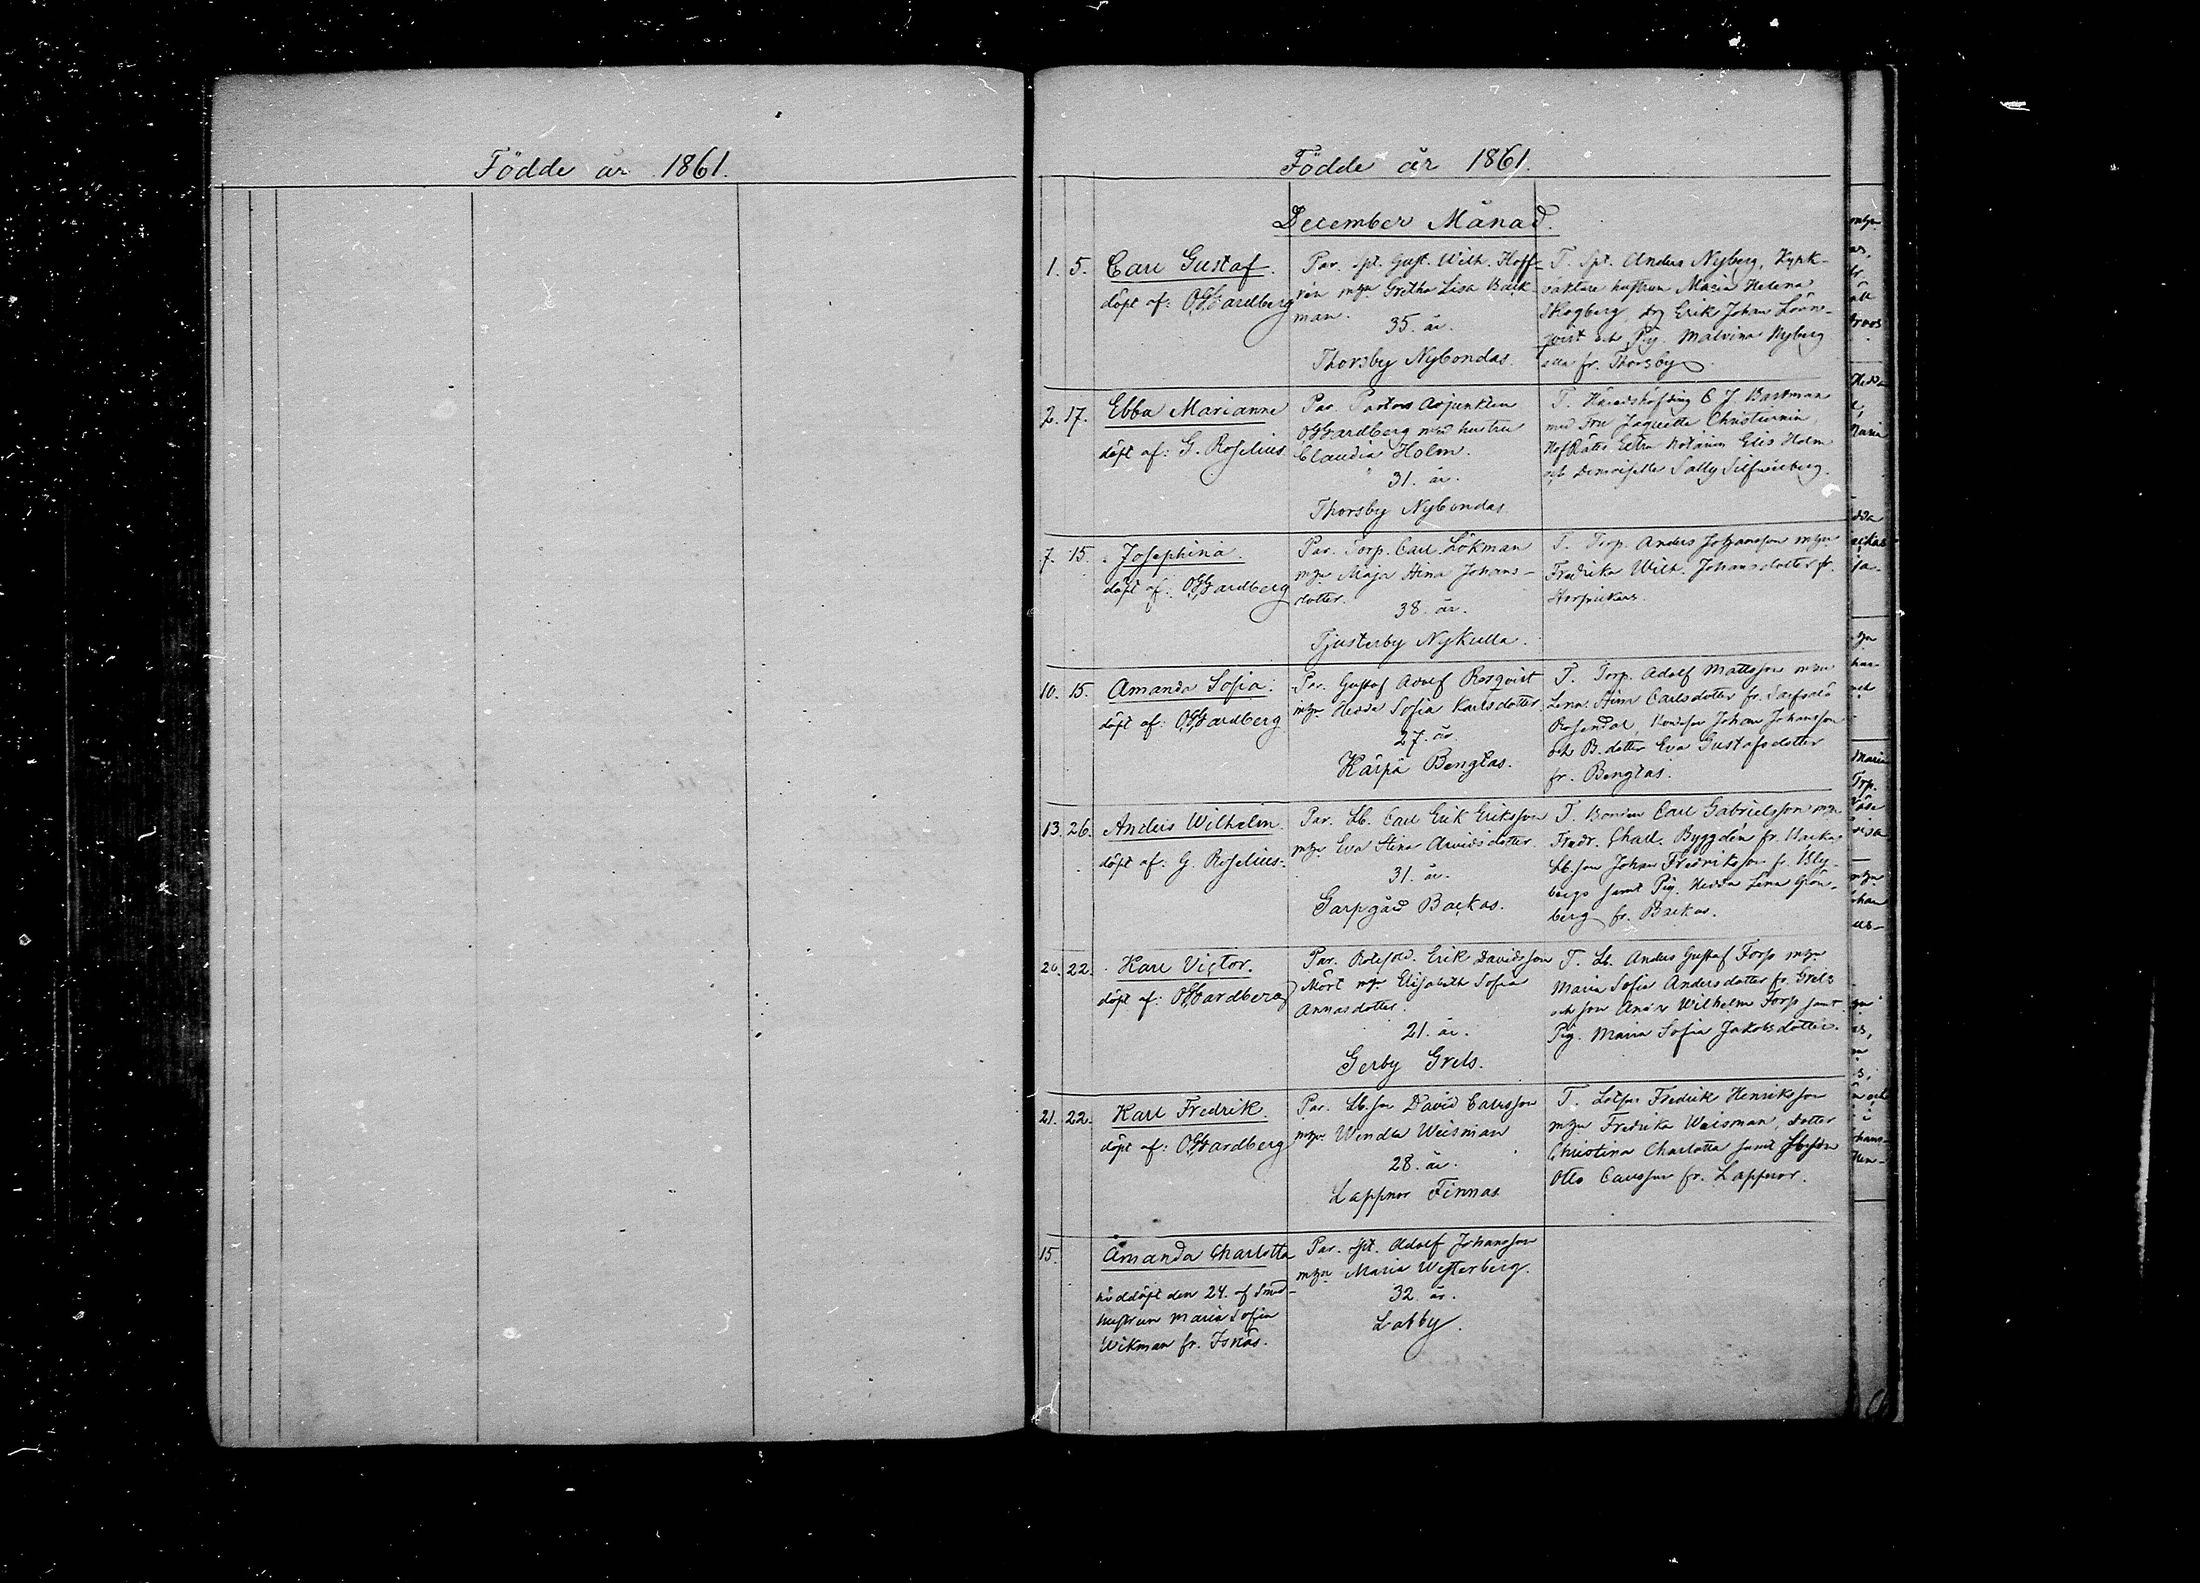 Födde år 1861.
Födde år 1861.
December Månad.
1. 5. Carl Gustaf.
döpt af: OGGardberg
Par. Spt. Gust. Wilh. Hoff-
rén mzn Gretha Lisa Back-
man.
35. år.
Thorsby Nybondas.
T. Spt. Anders Nyberg, Kyrk-
vaktare hustrun Maria Helena
Skogberg, drg Erik Johan Lönn-
qvist och Pig. Malvina Nyberg
alla fr. Thorsby
2. 17. Ebba Marianne
döpt af: G. Roselius
Par. Pastors Adjunkten
OGGardberg med hustru
Claudia Holm.
31. år.
Thorsby Nybondas
T. Häradshöfding C J
med Fru Jaquette Christiernin,
HofRätts Extra Notarien Elis Holm
och Demoiselle Sally Silfverberg.
7. 15. Josephina.
döpt af: OGGardberg
Par. Torp. Carl Lökman
mzn Maja Stina Johans-
dotter.
38. år.
Tjusterby Nykulla.
T. Torp. Anders Johansson mzn
Fredrika Wilh. Johansdotter fr.
10. 15. Amanda Sofia.
döpt af: OGGardberg
Par. Gustaf Adolf Rosqvist
mzn Hedda Sofia Karlsdotter.
27. år.
Kärpä Bengtas.
T. Torp. Adolf Mattsson mzn
Lena Stina Carlsdotter fr. Sarfsalö
Rosendal, Johan Johansson
och B. dotter Eva Gustafsdotter
fr. Bengtas.
13. 26. Anders Wilhelm.
döpt af: G. Roselius.
Par. Lb. Carl Erik Eriksson
mzn Eva Stina Arvidsdotter.
31. år.
Garpgård Backas.
T. Bonden Carl Gabrielsson mzn
Fredr. Charl. Byggdén fr. Backas
Lb.son Johan Fredriksson fr. Bly-
bergs samt Pig. Hedda Lena Grön-
berg fr. Backas.
20. 22. Karl Victor.
döpt af: OGGardberg
Par. Erik Davidsson
Mört mzn Elisabeth Sofia
Annasdotter.
21. år.
Gerby Grels.
T. Lb. Anders Gustaf Forss mzn
Maria Sofia Andersdotter fr. Grels
och son Anders Wilhelm Forss samt
Pig. Maria Sofia Jakobsdotter.
21. 22. Karl Fredrik.
döpt af: OGGardberg
Par. Lb.son David Carlsson
mzn Wendla Weisman
28. år.
Lappnor Finnas
T. Lotsen Fredrik Henriksson
mzn Fredrika Weisman, dotter
Christina Charlotta samt Lbson
Otto Carlsson fr. Lappnor.
15. Amanda Charlotta
nöddöpt den 24. af Smed-
hustrun Maria Sofia
Wikman fr. Isnäs.
Par. Spt. Adolf Johansson
mzn Maria Westerberg.
32. år.
Labby.